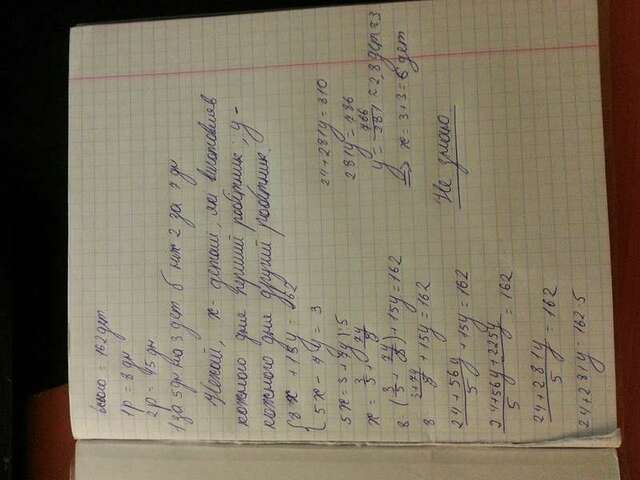 всього = 162 дет
1р = 8 дн
2р = 15 дн
1) за 5 дн на 3 дет б ніж 2 за 7 дн
Нехай, x - деталі, які виготовляв
кожного дня перший робітник, y -
кожного дня другий робітник.
8x + 15y = 162
5x - 7y = 3
5x = 3 + 7y | : 5
x = 3/5 + 7y/5
8 (3/5 + 7y/5) + 15y = 162
8 3+7y/5 + 15y = 162
24 + 56y/5 + 15y = 162
24 + 56y + 225y/5 = 162
24 + 281y/5 = 162
24 + 281y = 162 5
24 + 281y = 810
281y = 786
y = 786/281 ≈ 2,8 дет ≈ 3
x = 3 + 3 = 6 дет
Не знаю